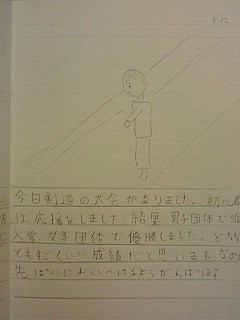 5.12
今日剣道の大会がありました。初心者
は応援をしました。結果 男子団体で準
入賞、女子団体で優勝しました。どちら
ともすごくいい成績だと思います。なので
先ぱいにおいつけるようがんばります